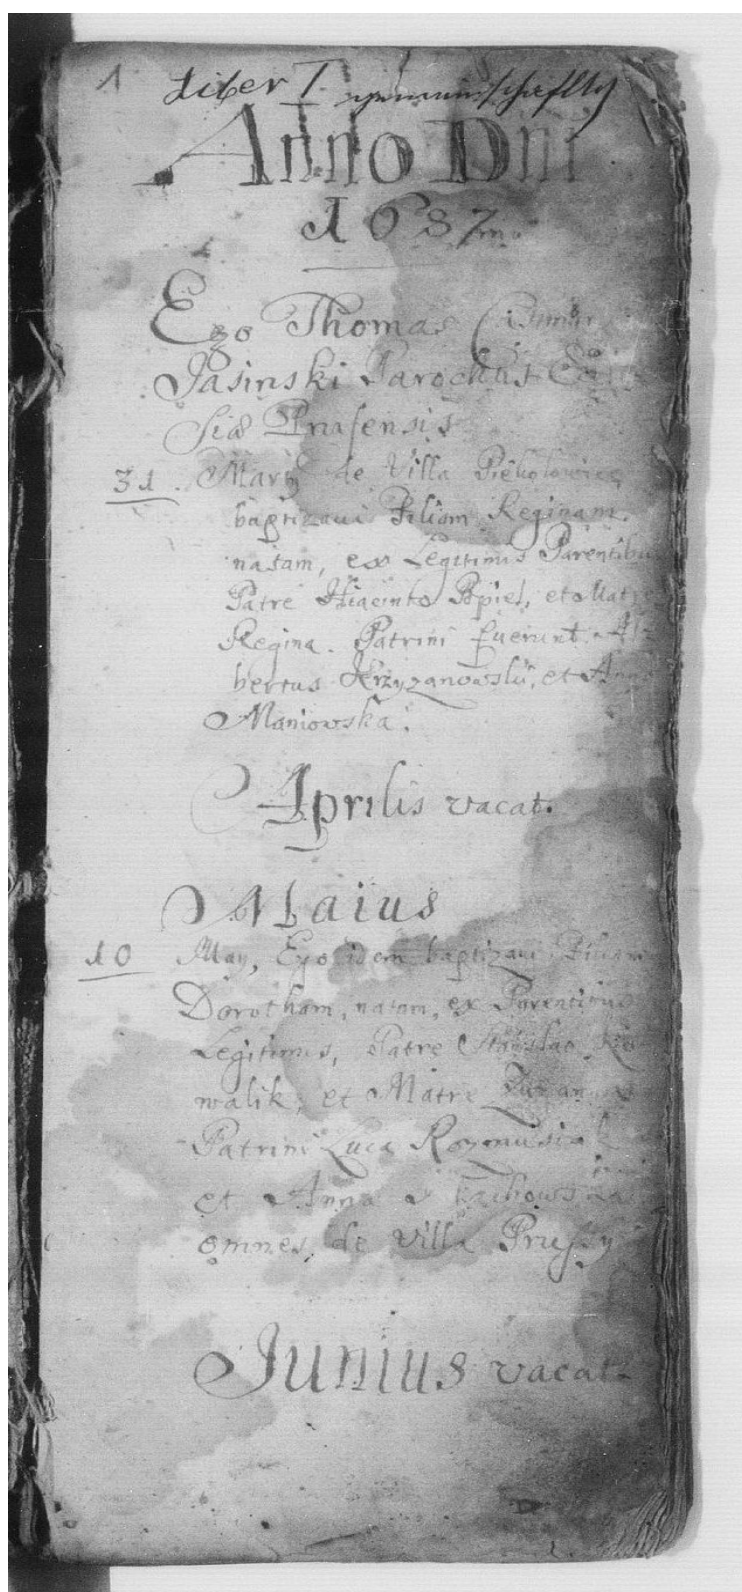 1 Liber I
Anno Dni
1687
Ego Thomas
Jasinski Parochus
siæ Prusensis
31. Marty de Villa
baptizavi Filiam Reginam.
natam, ex Legitimis Parentibu
Patre Hiacinto Popiel, et Matre
Regina. Patrini fuerunt Al-
bertus Krzyzanowski, et Anna
Maniowska.
Aprilis vacat.
Maius
10 May, Ego idem baptizavi Filiam
Dorotham, natam, ex Parentibus
Legitimis, Patre Stanislao Ko
walik, et Matre
Patrini Luca
et Anna
omnes, de Villa Prussy
Junius vacat.